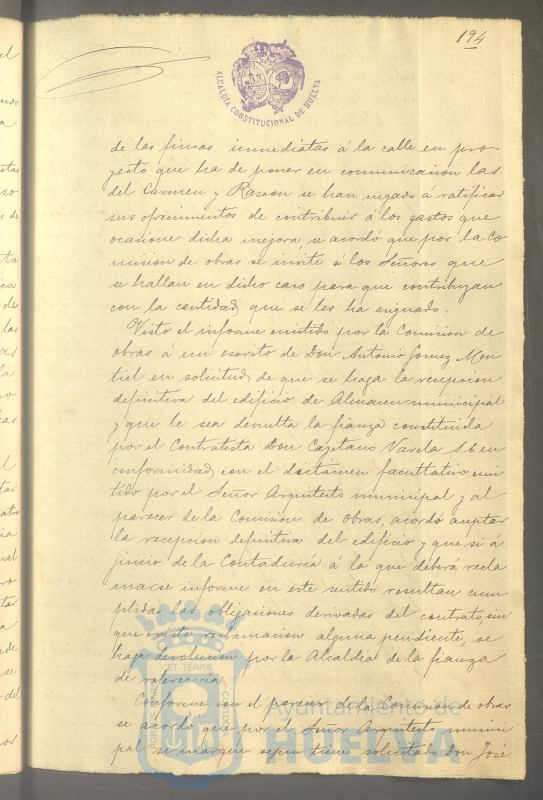 194
ALCALDÍA CONSTITUCIONAL DE HUELVA
de las fincas inmediatas á la calle en pro-
yecto que ha de poner en comunicación las
del Carmen y Rascon se han negado á ratificar
sus ofrecimientos de contribuir á los gastos que
ocasione dicha mejora, se acordó que por la Co
misión de obras se invite á los Señores que
se hallan en dicho caso para que contribuyan
con la cantidad que se les ha asignado.
Visto el informe emitido por la Comisión de
obras á un escrito de Don Antonio Gomez Mon
tiel en solicitud de que se haga la recepcion
definitiva del edificio de Almacen municipal
y que le sea devuelta la fianza constituida
por el Contratista Don Cayetano Varela S. E. en
conformidad con el dictámen facultativo emi
tido por el Señor Arquitecto municipal y al
parecer de la Comision de Obras, acordó aceptar
la recepcion definitiva del edificio y que si á
juicio de la Contaduría á la que deberá recla
marse informe en este sentido resultan cum
plidas las obligaciones derivadas del contrato, sin
que exista reclamacion alguna pendiente, se
haga devolucion por la Alcaldia de la fianza
de referencia.
Conforme con el parecer de la Comision de obras
se acordó que por el Señor Arquitecto munici
pal se marque segun tiene solicitado Don José
Ayuntamiento de
HUELVA